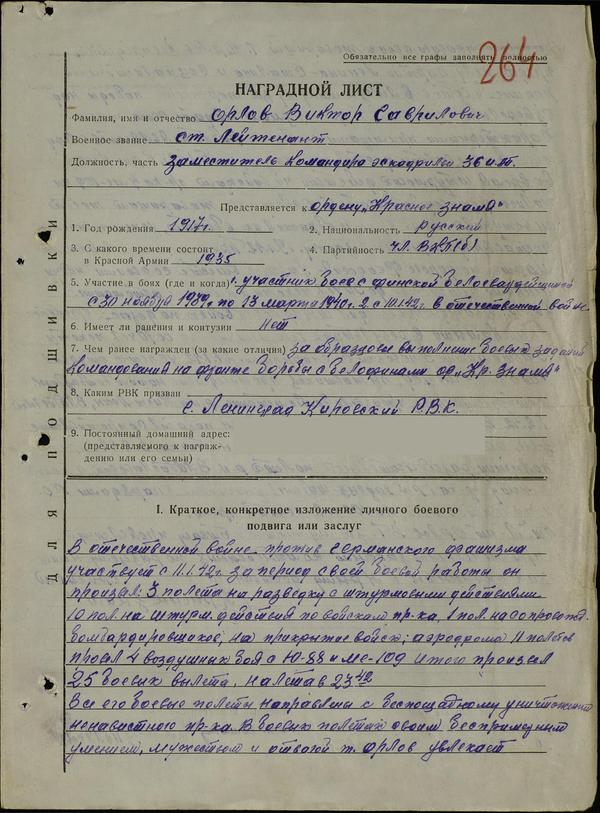 Обязательно все графы заполнять полностью
264
НАГРАДНОЙ ЛИСТ
Фамилия, имя и отчество Орлов Виктор Гаврилович
Военное звание ст. Лейтенант
Должность, часть заместитель командира эскадрильи 36 иап.
Представляется к ордену „Красное знамя"
1. Год рождения 1917г. 2. Национальность Русский
3. С какого времени состоит в Красной Армии 1935 4. Партийность чл. ВКП(б)
5. Участие в боях (где и когда) 1. участник боев с финской белогвардейщиной
с 30 ноября 1939г. по 13 марта 1940г. 2. с 11.1.42г. в отечественной войне
6. Имеет ли ранения и контузии Нет
7. Чем ранее награжден (за какие отличия) за образцовое выполнение боевых заданий
командования на фронте борьбы с белофинами ор. „Кр. знамя"
8. Каким РВК призван
г. Ленинград Кировский Р.В.К.
9. Постоянный домашний адрес:
(представляемого к награж-
дению или его семьи)
ДЛЯ ПОДШИВКИ
I. Краткое, конкретное изложение личного боевого
подвига или заслуг
В отечественной войне против германского фашизма
участвует с 11.1.42г. за период своей боевой работы он
произвел: 3 полета на разведку с штурмовыми действиями
10 пол на штурм. действия по войскам пр-ка, 1 пол. на сопровожд.
бомбардировщиков, на прикрытие войск, аэродрома 11 полетов
провел 4 воздушных боя с Ю-88 и ме-109 итого произвел
25 боевых вылета, налетав 23 42
Все его боевые полеты направлены к беспощадному уничтожению
ненавистного пр-ка. В боевых полетах своим беспримерным
умением, мужеством и отвагой т. Орлов увлекает